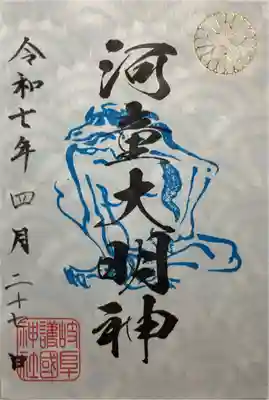 河童大明神
令和七年四月二十七日
岐阜
護國
神社